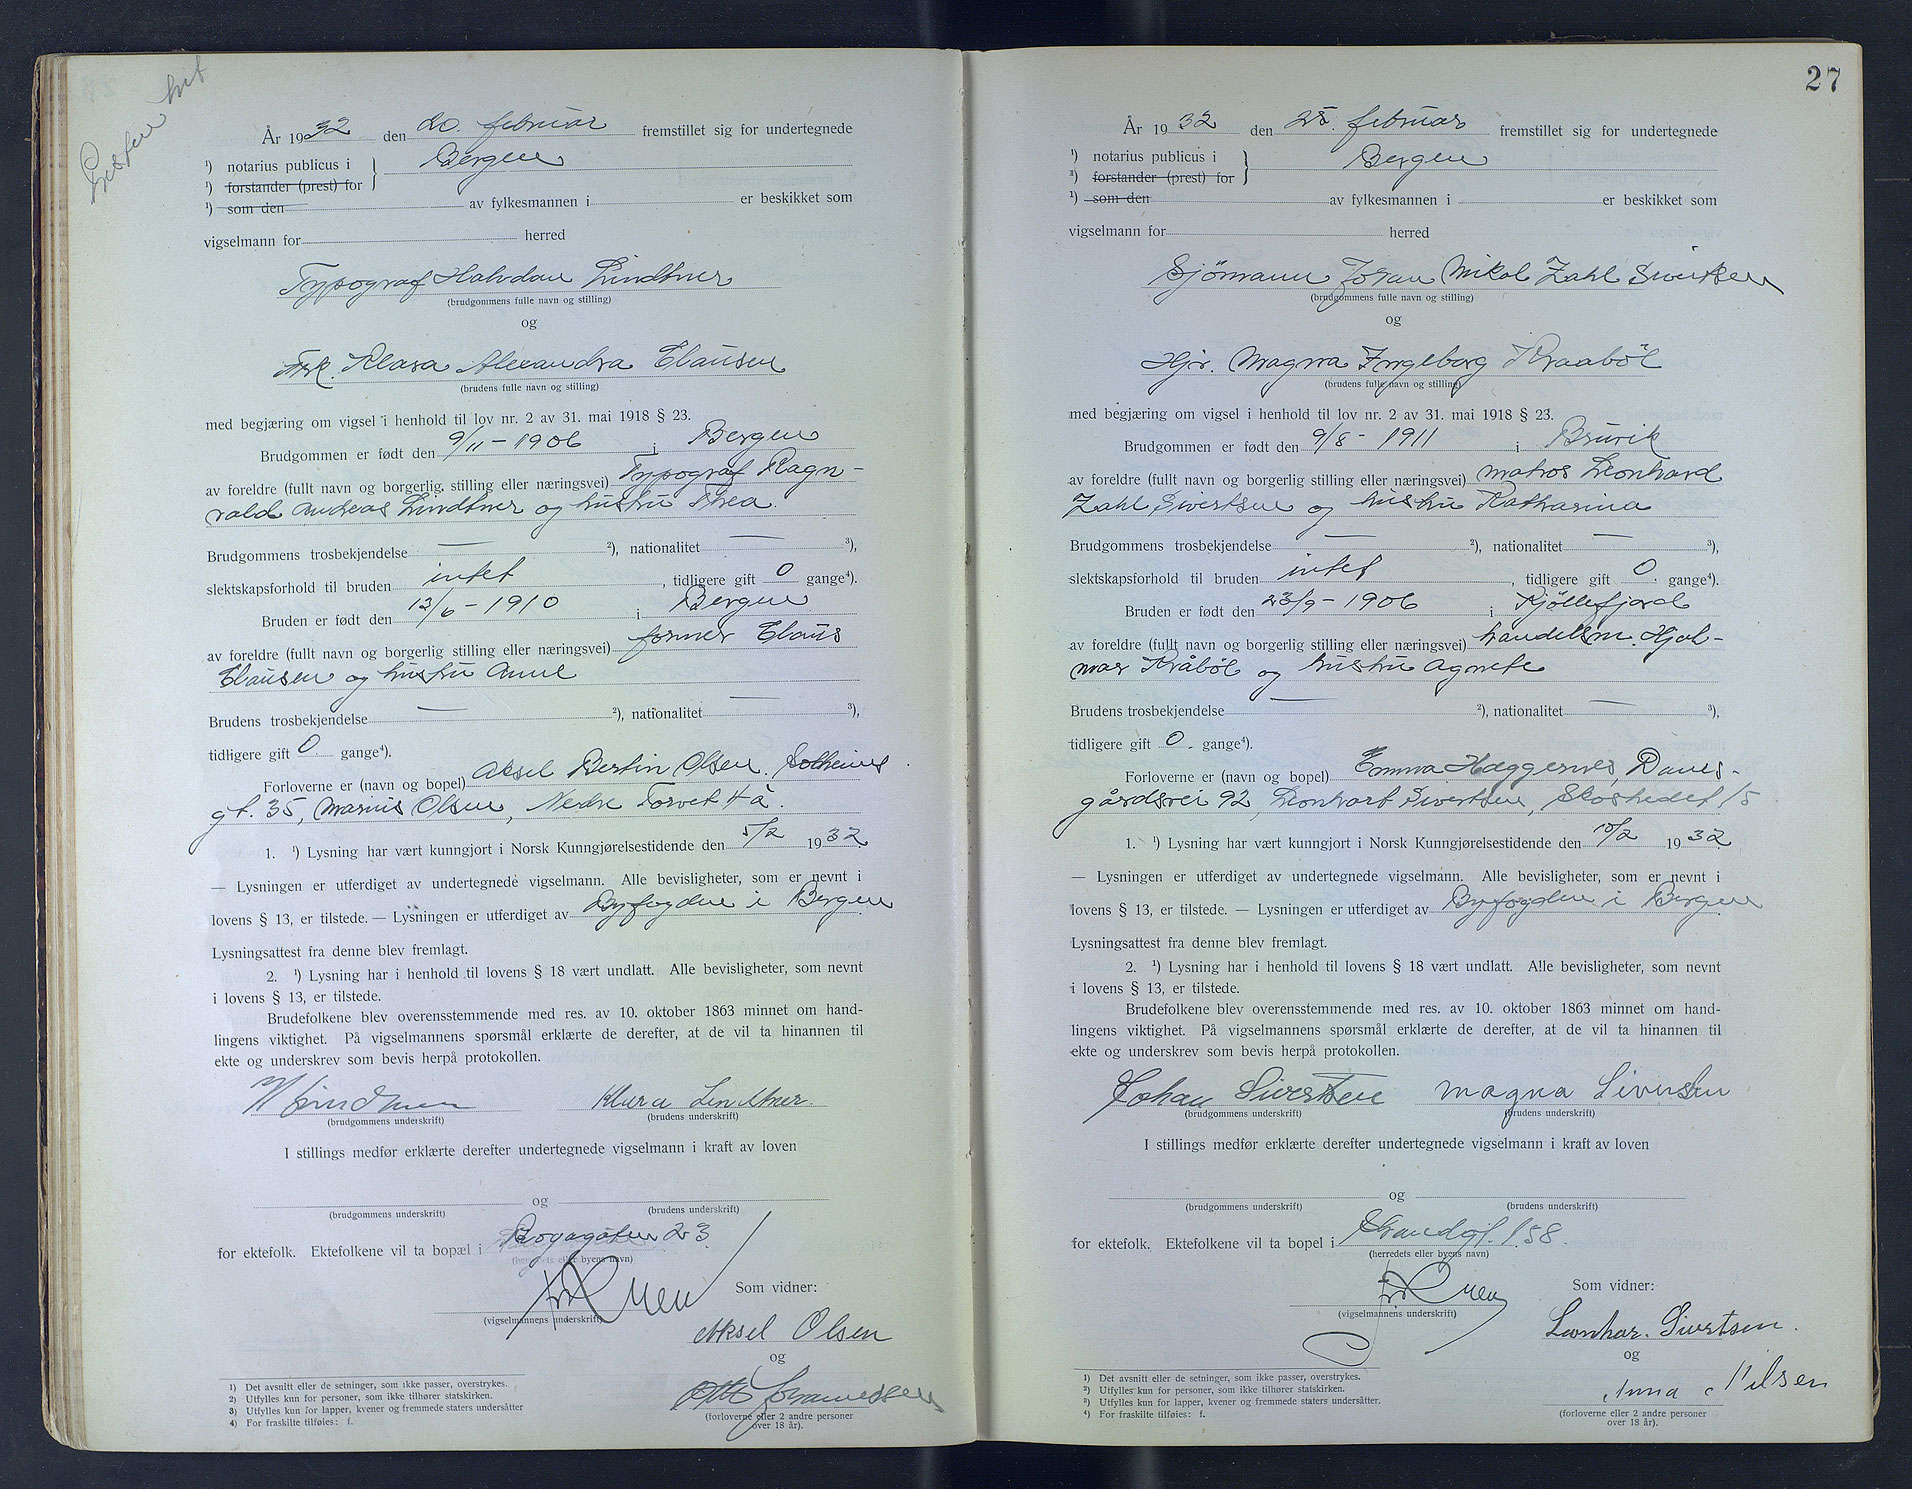 hit
År 1932 den 20. februar fremstillet sig for undertegnede
¹) notarius publicus i } Bergen
¹) forstander (prest) for
¹) som den av fylkesmannen i er beskikket som
vigselmann for herred
Typograf Halvdan Lindtner
(brudgommens fulle navn og stilling)
og
Frk. Klara Alexandra Clausen
(brudens fulle navn og stilling)
med begjæring om vigsel i henhold til lov nr. 2 av 31. mai 1918 § 23.
Brudgommen er født den 9/11 - 1906 i Bergen
av foreldre (fullt navn og borgerlig stilling eller næringsvei) Typograf Ragn-
vald Andreas Lindtner og hustru Thea.
Brudgommens trosbekjendelse — ²), nationalitet — ³),
slektskapsforhold til bruden intet, tidligere gift 0 gange⁴).
Bruden er født den 13/6 - 1910 i Bergen
av foreldre (fullt navn og borgerlig stilling eller næringsvei) former Claus
Clausen og hustru Anne
Brudens trosbekjendelse — ²), nationalitet — ³),
tidligere gift 0 gange⁴).
Forloverne er (navn og bopel) Aksel Bertin Olsen. Solheims
gt. 35, Marius Olsen, Nedre Torvet 4 a.
1. ¹) Lysning har vært kunngjort i Norsk Kunngjørelsestidende den 5/2 1932
— Lysningen er utferdiget av undertegnede vigselmann. Alle bevisligheter, som er nevnt i
lovens § 13, er tilstede. — Lysningen er utferdiget av Byfogden i Bergen
Lysningsattest fra denne blev fremlagt.
2. ¹) Lysning har i henhold til lovens § 18 vært undlatt. Alle bevisligheter, som nevnt
i lovens § 13, er tilstede.
Brudefolkene blev overensstemmende med res. av 10. oktober 1863 minnet om hand-
lingens viktighet. På vigselmannens spørsmål erklærte de derefter, at de vil ta hinannen til
ekte og underskrev som bevis herpå protokollen.
Klara Lindtner.
(brudgommens underskrift) (brudens underskrift)
I stillings medfør erklærte derefter undertegnede vigselmann i kraft av loven
og
(brudgommens underskrift) (brudens underskrift)
for ektefolk. Ektefolkene vil ta bopæl i 23
(herredets eller byens navn)
Som vidner:
(vigselmannens underskrift)
Aksel Olsen
og
Otto Johannessen
(forloverne eller 2 andre personer
over 18 år).
1) Det avsnitt eller de setninger, som ikke passer, overstrykes.
2) Utfylles kun for personer, som ikke tilhører statskirken.
3) Utfylles kun for lapper, kvener og fremmede staters undersåtter
4) For fraskilte tilføies: f.
27
År 1932 den 25. februar fremstillet sig for undertegnede
¹) notarius publicus i } Bergen
¹) forstander (prest) for
¹) som den av fylkesmannen i er beskikket som
vigselmann for herred
Sjømann Johan Mikal Zahl Sivertsen
(brudgommens fulle navn og stilling)
og
Hjv. Magna Ingeborg Kraabøl
(brudens fulle navn og stilling)
med begjæring om vigsel i henhold til lov nr. 2 av 31. mai 1918 § 23.
Brudgommen er født den 9/8 - 1911 i Bruvik
av foreldre (fullt navn og borgerlig stilling eller næringsvei) matros Leonhard
Zahl Sivertsen og hustru Katharina
Brudgommens trosbekjendelse — ²), nationalitet — ³),
slektskapsforhold til bruden intet, tidligere gift 0 gange⁴).
Bruden er født den 23/9 - 1906 i Kjøllefjord
av foreldre (fullt navn og borgerlig stilling eller næringsvei) handelsm. Hjal-
mar Kråbøl og hustru Agnete
Brudens trosbekjendelse — ²), nationalitet — ³),
tidligere gift 0. gange⁴).
Forloverne er (navn og bopel) Emma Haggernes, Dams-
gårdsvei 92, Leonhart Sivertsen, Skostredet 15
1. ¹) Lysning har vært kunngjort i Norsk Kunngjørelsestidende den 10/2 1932
— Lysningen er utferdiget av undertegnede vigselmann. Alle bevisligheter, som er nevnt i
lovens § 13, er tilstede. — Lysningen er utferdiget av Byfogden i Bergen
Lysningsattest fra denne blev fremlagt.
2. ¹) Lysning har i henhold til lovens § 18 vært undlatt. Alle bevisligheter, som nevnt
i lovens § 13, er tilstede.
Brudefolkene blev overensstemmende med res. av 10. oktober 1863 minnet om hand-
lingens viktighet. På vigselmannens spørsmål erklærte de derefter, at de vil ta hinannen til
ekte og underskrev som bevis herpå protokollen.
Johan Sivertsen Magna Sivertsen
(brudgommens underskrift) (brudens underskrift)
I stillings medfør erklærte derefter undertegnede vigselmann i kraft av loven
og
(brudgommens underskrift) (brudens underskrift)
for ektefolk. Ektefolkene vil ta bopel i Strandgt. 158.
(herredets eller byens navn)
Som vidner:
(vigselmannens underskrift)
Leonhar. Sivertsen.
og
Anna Nilsen
(forloverne eller 2 andre personer
over 18 år).
¹) Det avsnitt eller de setninger, som ikke passer, overstrykes.
²) Utfylles kun for personer, som ikke tilhører statskirken.
³) Utfylles kun for lapper, kvener og fremmede staters undersåtter.
⁴) For fraskilte tilføies: f.